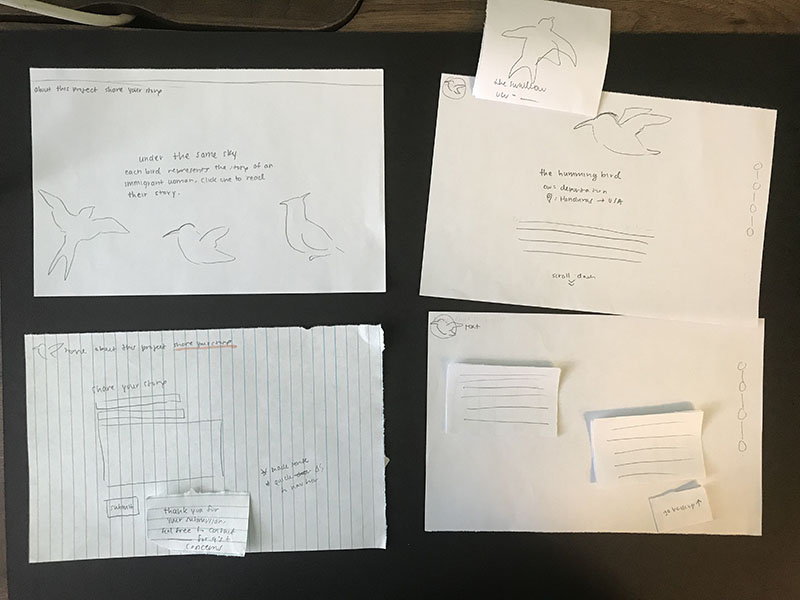 About this project share your story
under the same sky
each bird represents the story of an
immigrant woman. Click one to read
their story.
the swallow
the humming bird
cw: deportation
: Honduras → USA
scroll down
Home about this project share your story
share your story
submit
* made sense
* quick
in nav bar
thank you for
your submission.
feel free to contact
for any
concerns
text
go back up ↑